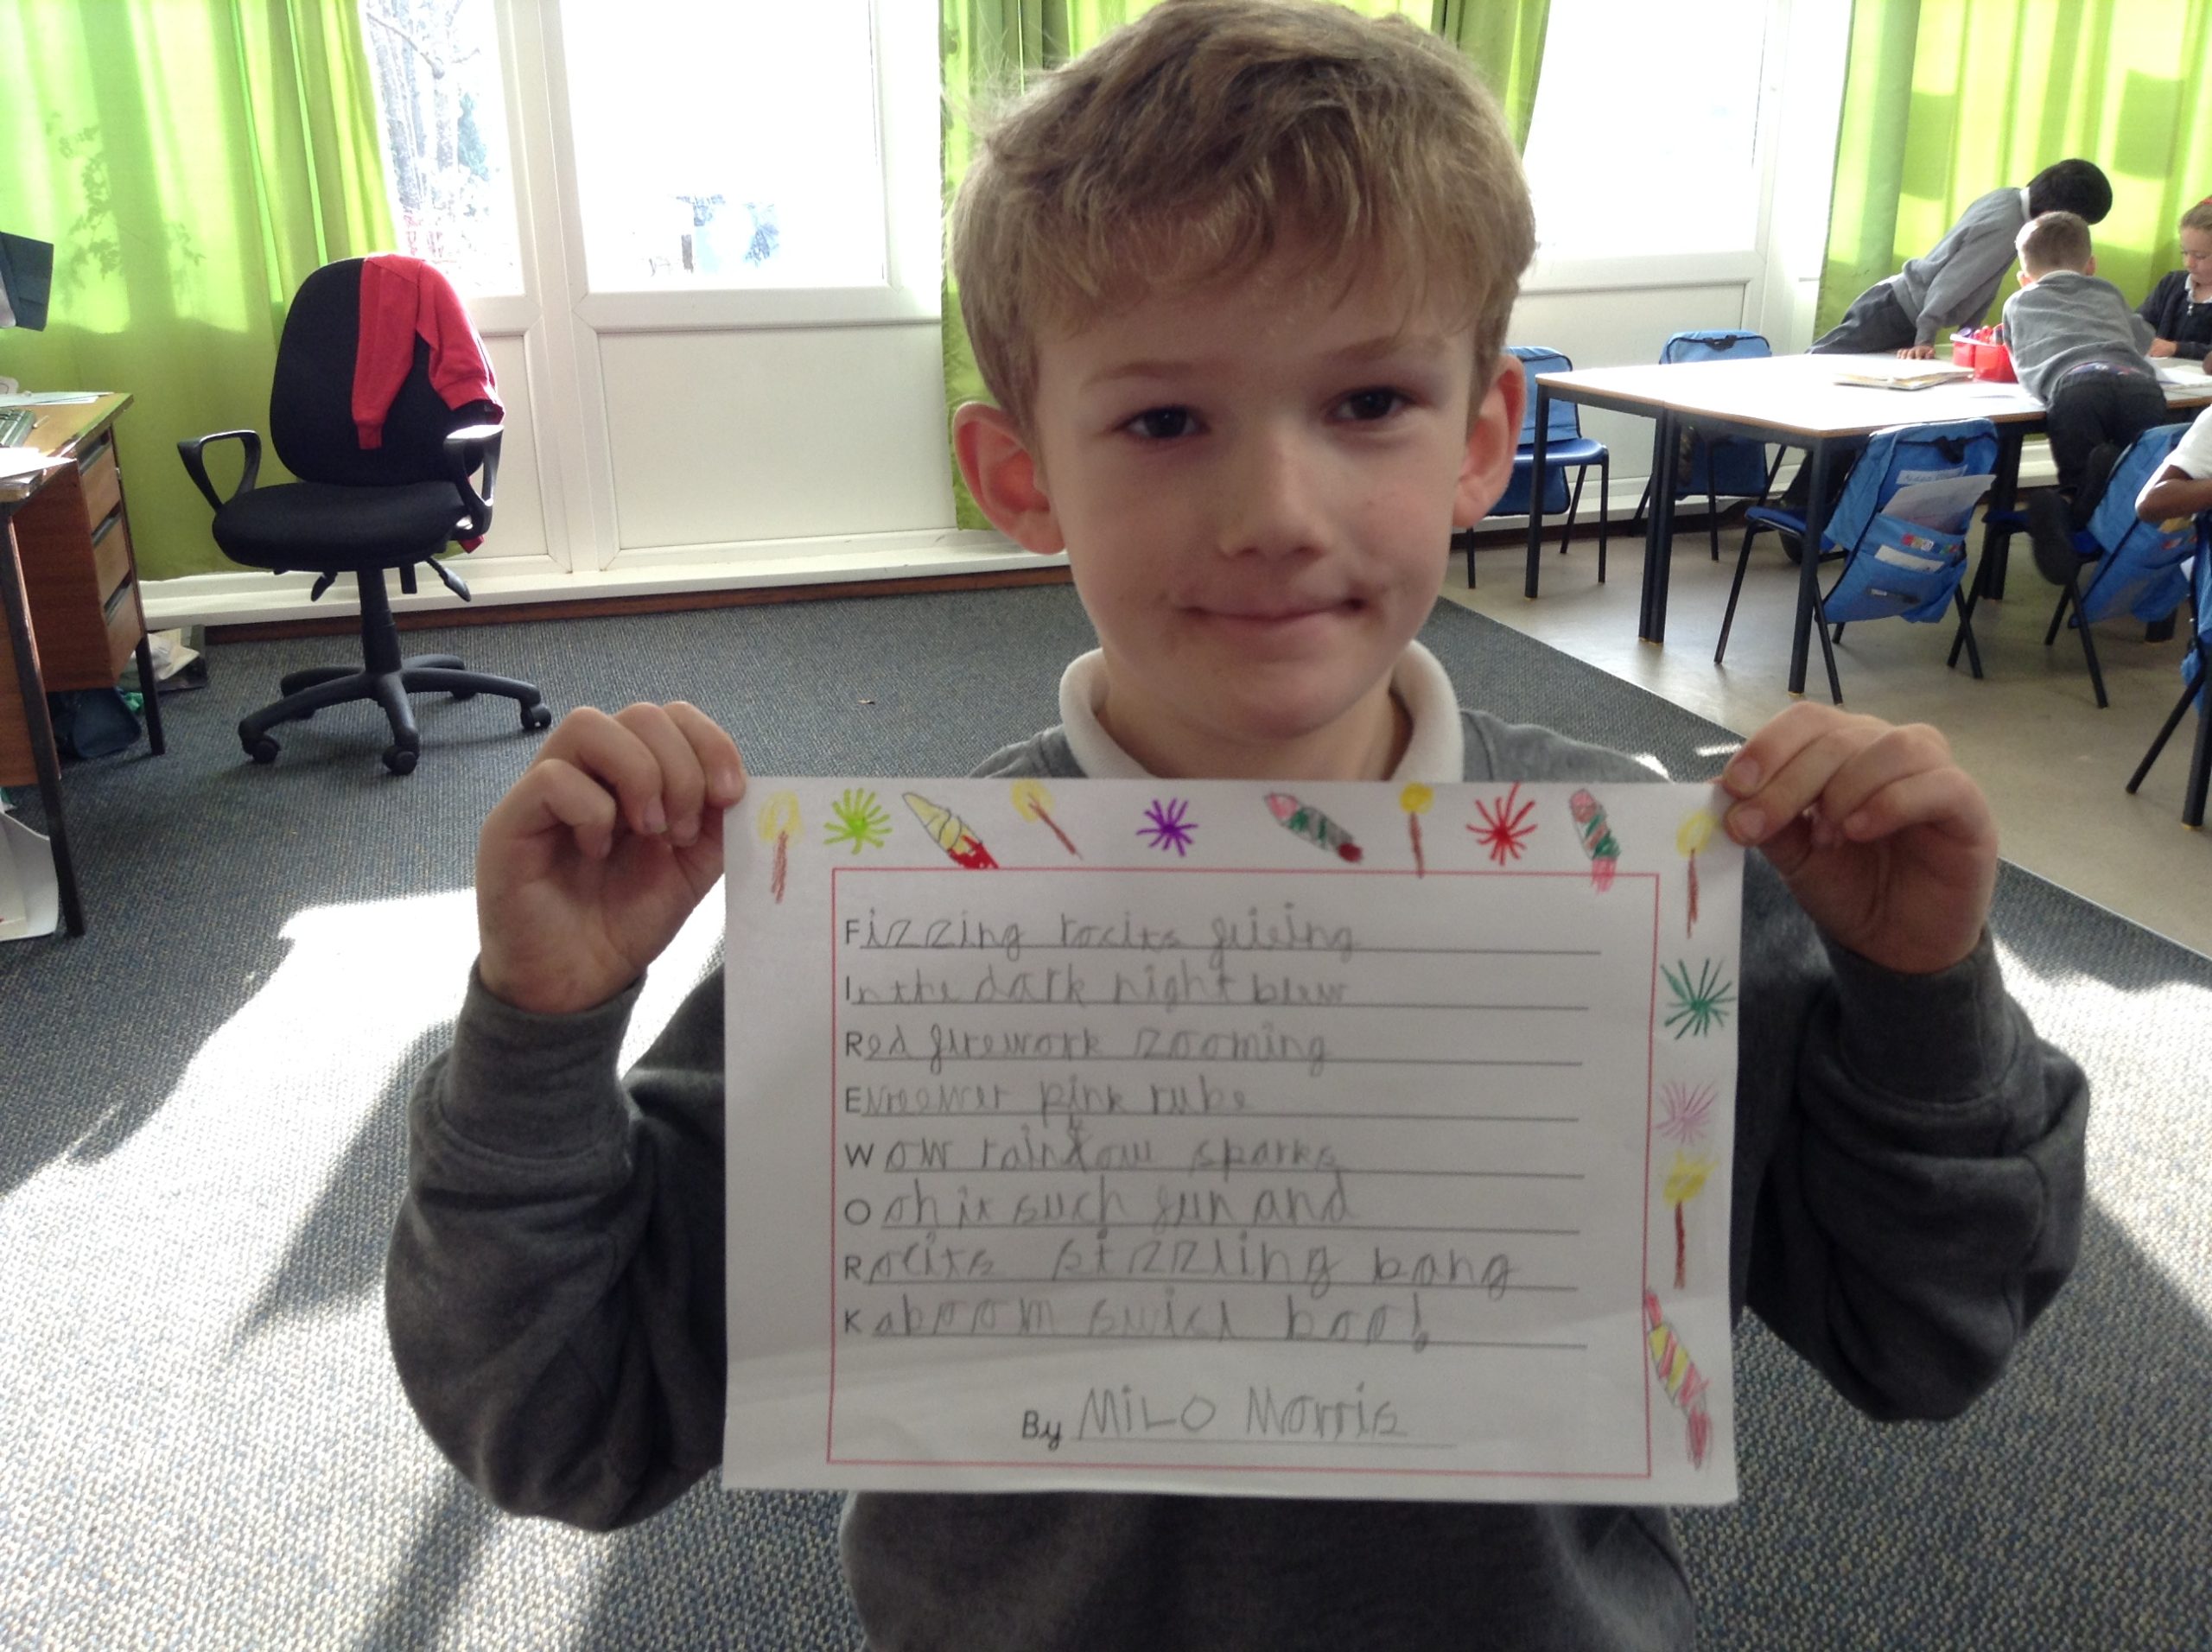 Fizzing rocits gliing
In the dark night blew
Red firework zooming
Evreewer pink rube
Wow rainbow sparks
Ooh it such fun and
Rocits sizzling bang
Kaboom swicl boo!
By MiLO Morris